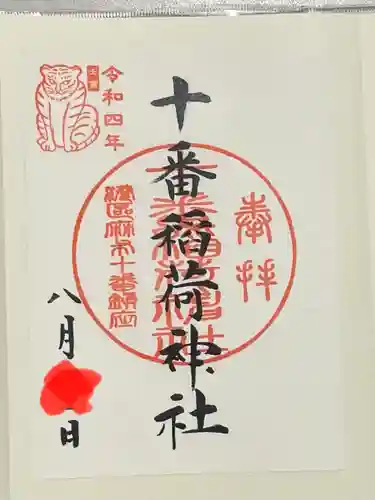 奉拝
十番稲荷神社
十番稲荷神社
港区麻布十番鎮座
令和四年
壬寅
八月
日